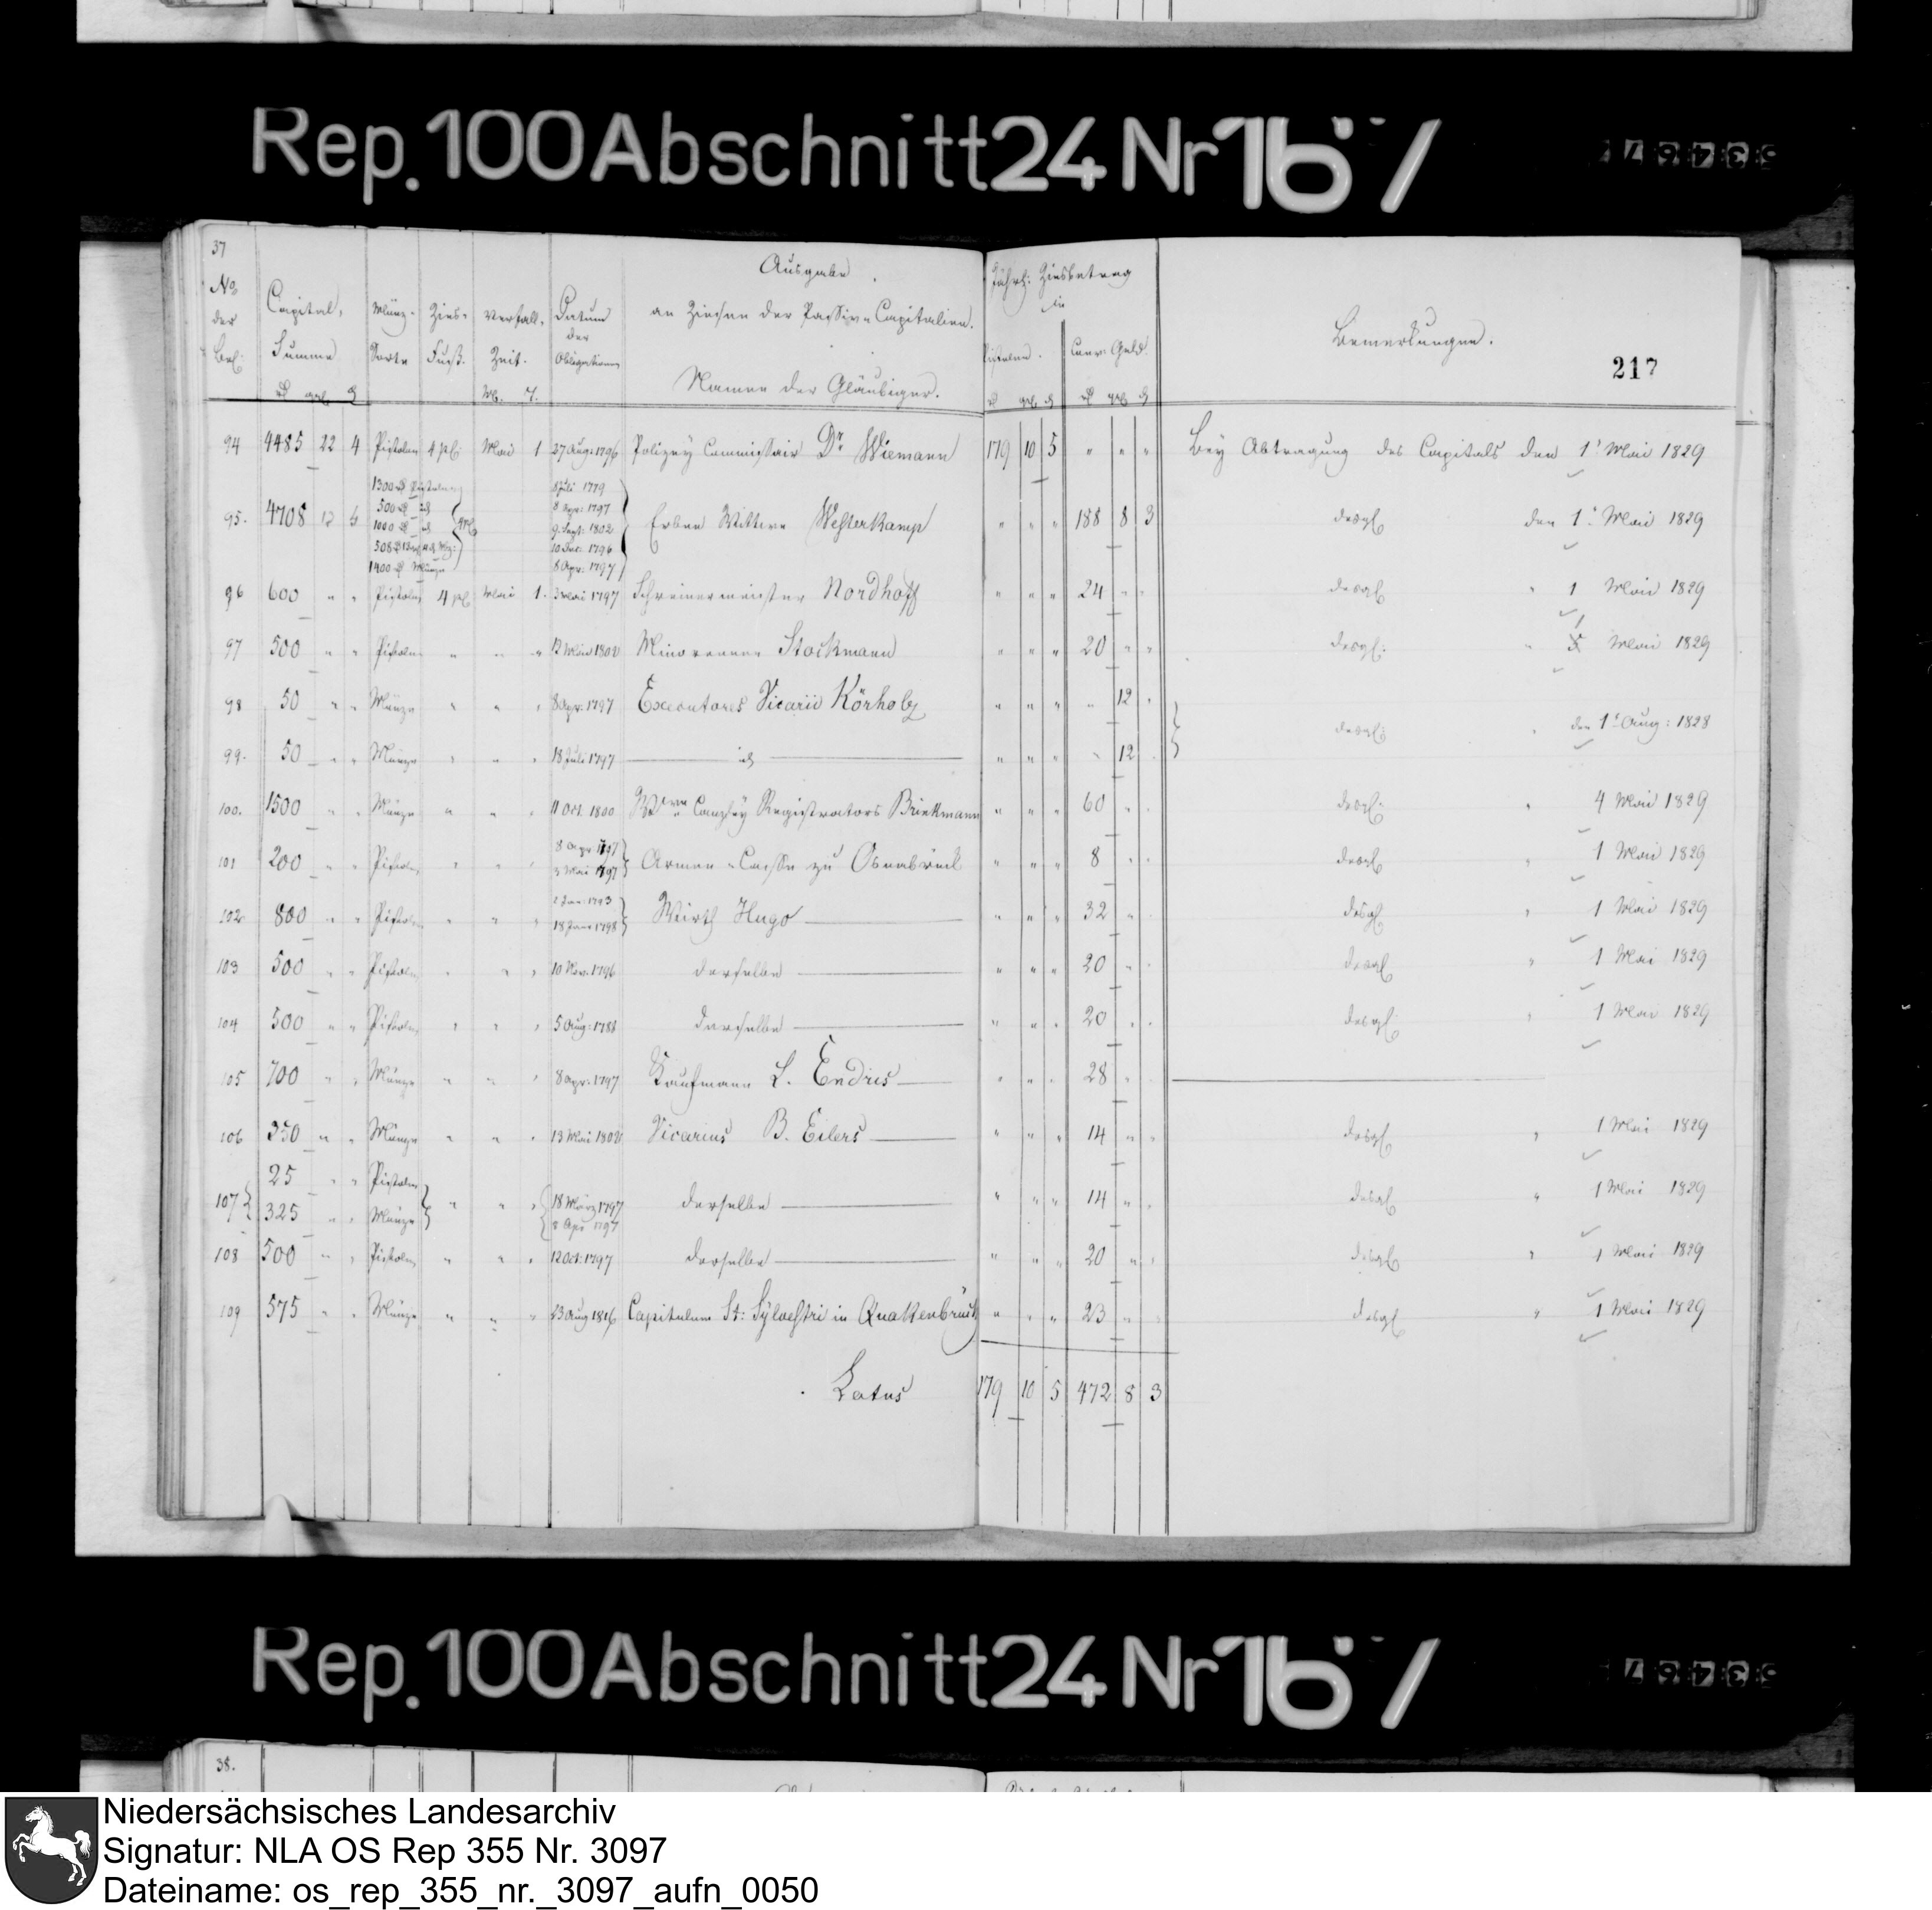 Rep.100Abschnitt24Nr167
37
Ausgabe
an Zinsen der Passiv-Capitalien.
Namen der Gläubiger.
No der Bel:
Capital, Summe
Münz-Sorte
Zins-Fuß.
Verfall-Zeit. M. T.
Datum der Obligationen
Jährl: Zinsbetrag in
Pistolen. Conv: Geld
Bemerkungen.
217
94 4485 22 4 Pistolen 4 pC: Mai 1 27 Aug: 1796 Polizey Commissair Dr Wiemann 179 10 5 " " " Bey Abtragung des Capitals den 1t Mai 1829
1300 Pistolen 8 Juli 1779
500 id 8 Apr: 1797
95. 4708 12 6 1000 id 9 Sept: 1802 Erben Wittwe Westerkamp " " " 188 8 3 desgl den 1t Mai 1829
10 Dec: 1796
1400 Münze 8 Apr: 1797
96 600 " " Pistolen 4 pC Mai 1. 3 Mai 1797 Schreinermeister Nordhoff " " " 24 " " desgl " 1 Mai 1829
97 500 " " Pistolen " " " 13 Mai 1802 Minorennen Stockmann " " " 20 " " desgl: " 1 Mai 1829
98 50 " " Münze " " " 8 Apr: 1797 Executores Vicarii Körholz " " " " 12 "
desgl: " den 1t Aug: 1828
99. 50 " " Münze " " " 18 Juli 1797 id " " " " 12 "
100. 1500 " " Münze " " " 11 Oct. 1800 Wwe Canzley Registrators Brinkmann " " " 60 " " desgl: " 4 Mai 1829
8 Apr 1797
101 200 " " Pistolen " " " 3 Mai 1797 Armen-Casse zu Osnabrück " " " 8 " " desgl " 1 Mai 1829
2 Jan: 1793
102 800 " " Pistolen " " " 18 Jan: 1798 Wirth Hugo " " " 32 " " desgl " 1 Mai 1829
103 500 " " Pistolen " " " 10 Nov. 1796 derselbe " " " 20 " " desgl " 1 Mai 1829
104 500 " " Pistolen " " " 5 Aug: 1788 derselbe " " " 20 " " desgl: " 1 Mai 1829
105 700 " " Münze " " " 8 Apr: 1797 Kaufmann L. Endres " " " 28 " "
106 350 " " Münze " " " 13 Mai 1802 Vicarius B. Eilers " " " 14 " " desgl " 1 Mai 1829
25 " " Pistolen
107 325 " " Münze " " " 18 März 1797 derselbe " " " 14 " " desgl " 1 Mai 1829
8 Apr 1797
108 500 " " Pistolen " " " 12 Oct: 1797 derselbe " " " 20 " " desgl " 1 Mai 1829
109 575 " " Münze " " " 23 Aug 1816 Capitulum St: Sylvestri in Quakenbrück " " " 23 " " desgl " 1 Mai 1829
Latus 179 10 5 472 8 3
Rep.100Abschnitt24Nr167
38.
Niedersächsisches Landesarchiv
Signatur: NLA OS Rep 355 Nr. 3097
Dateiname: os_rep_355_nr._3097_aufn_0050